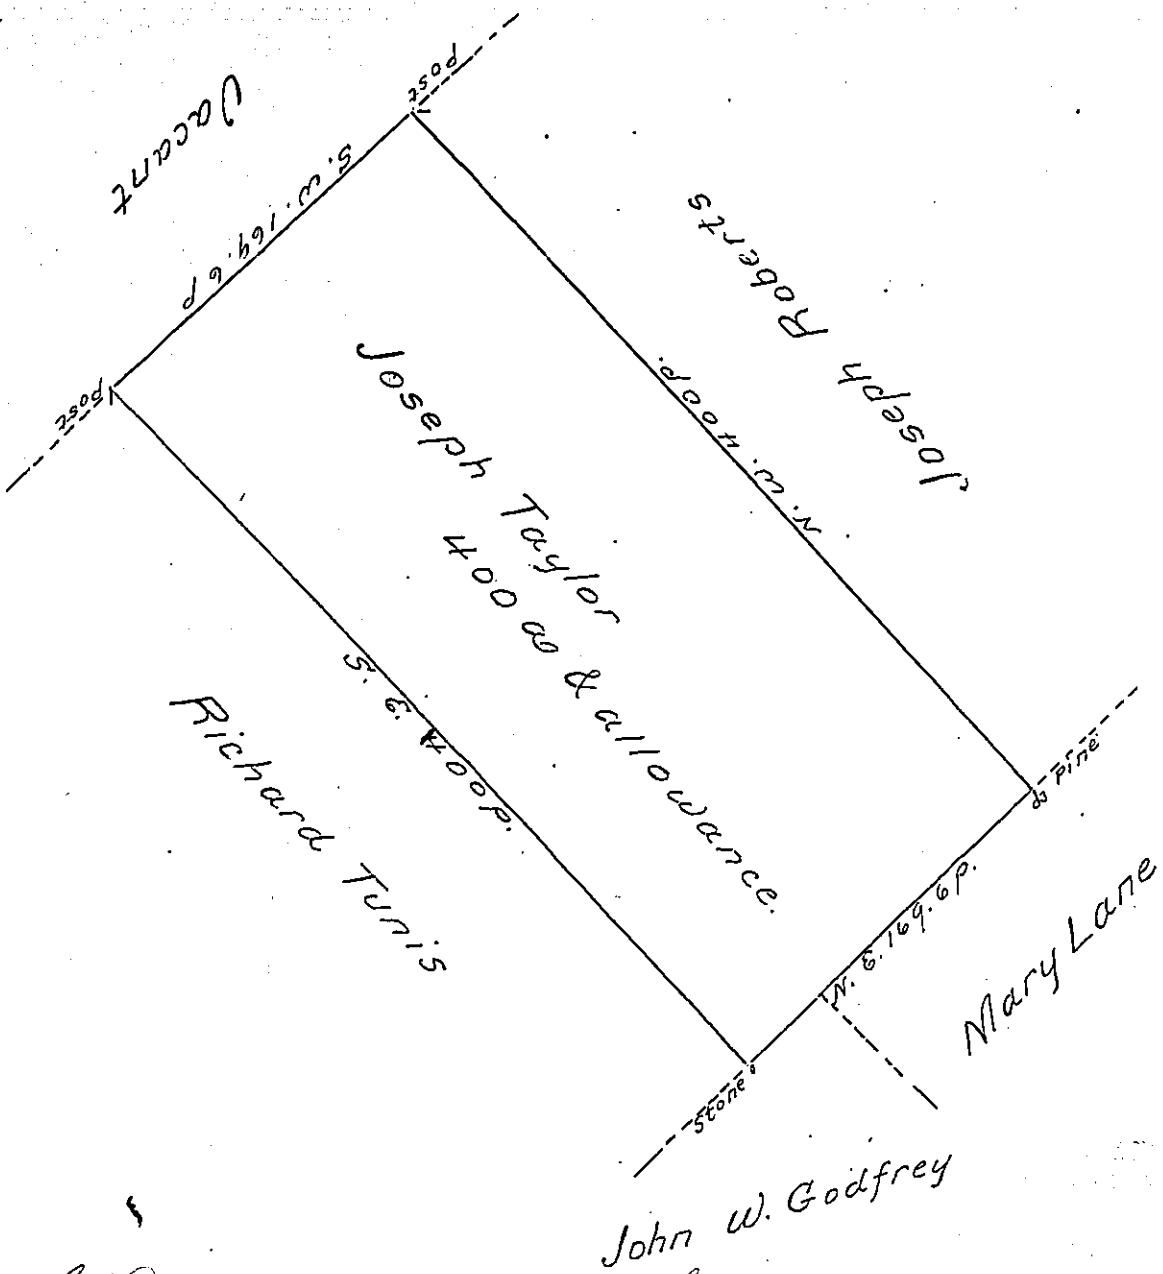 Vacant
Post
S. W. 169.6 P
Post
Joseph Roberts
N. W. 400 P.
Joseph Taylor
400 as & allowance.
S. E. 400 P.
Richard Tunis
Pine
N. E. 169.6 P.
Mary Lane
Stone
John W. Godfrey